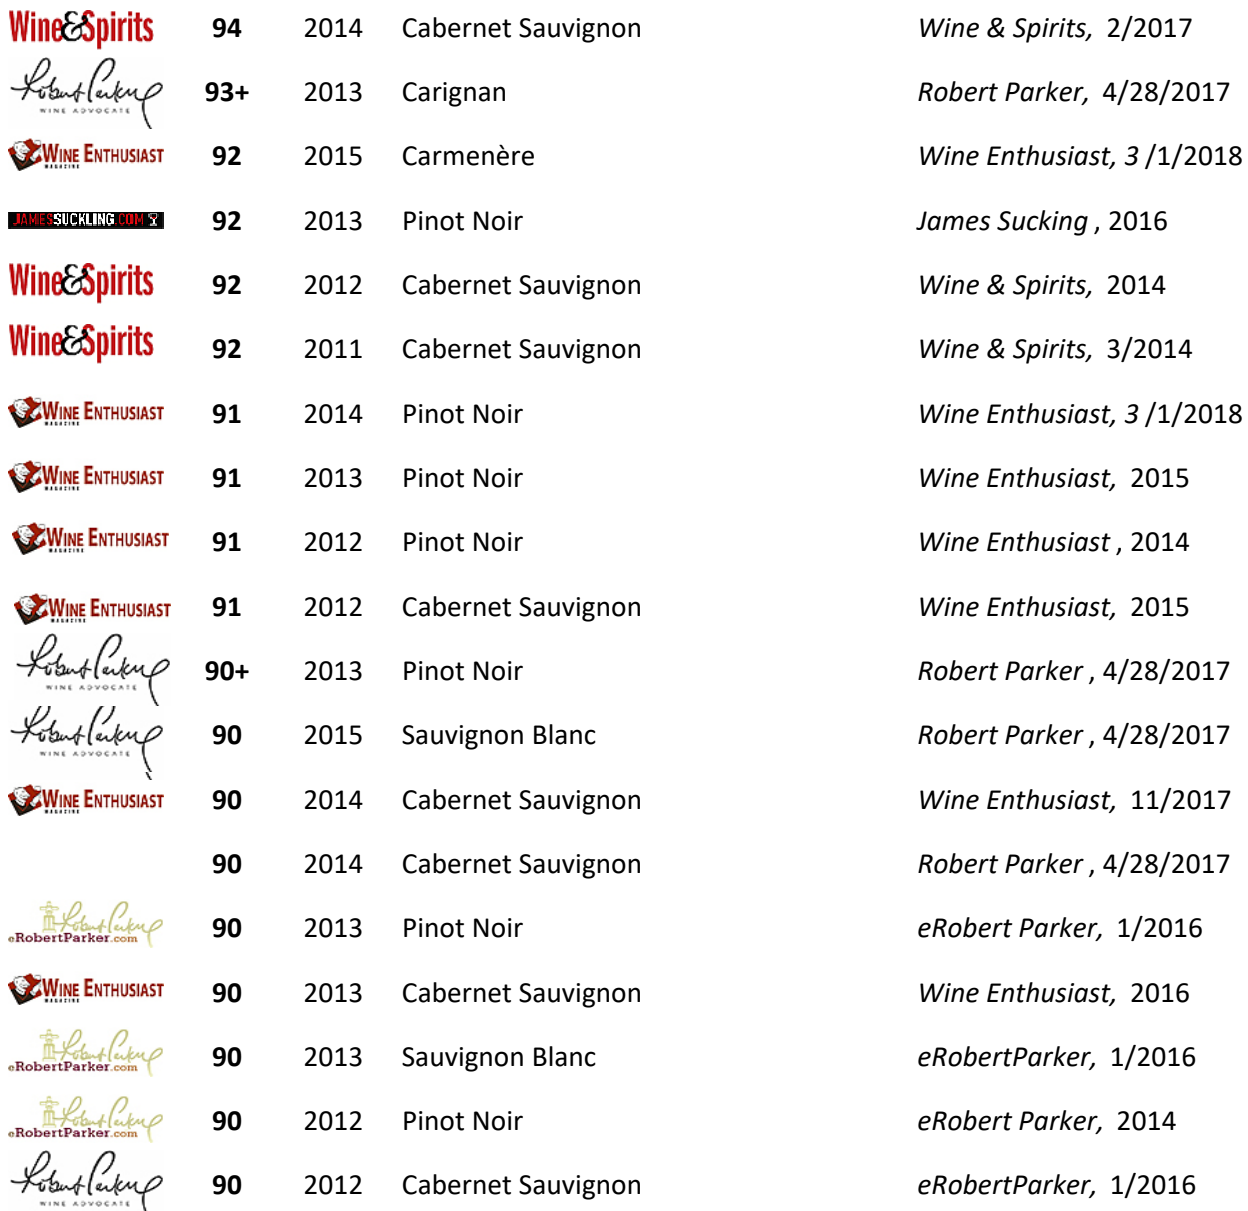 Wine&Spirits 94 2014 Cabernet Sauvignon Wine & Spirits, 2/2017
Robert Parker WINE ADVOCATE 93+ 2013 Carignan Robert Parker, 4/28/2017
WINE ENTHUSIAST MAGAZINE 92 2015 Carmenère Wine Enthusiast, 3 /1/2018
JAMESSUCKLING.COM 92 2013 Pinot Noir James Sucking , 2016
Wine&Spirits 92 2012 Cabernet Sauvignon Wine & Spirits, 2014
Wine&Spirits 92 2011 Cabernet Sauvignon Wine & Spirits, 3/2014
WINE ENTHUSIAST MAGAZINE 91 2014 Pinot Noir Wine Enthusiast, 3 /1/2018
WINE ENTHUSIAST MAGAZINE 91 2013 Pinot Noir Wine Enthusiast, 2015
WINE ENTHUSIAST MAGAZINE 91 2012 Pinot Noir Wine Enthusiast , 2014
WINE ENTHUSIAST MAGAZINE 91 2012 Cabernet Sauvignon Wine Enthusiast, 2015
Robert Parker WINE ADVOCATE 90+ 2013 Pinot Noir Robert Parker , 4/28/2017
Robert Parker WINE ADVOCATE 90 2015 Sauvignon Blanc Robert Parker , 4/28/2017
WINE ENTHUSIAST MAGAZINE 90 2014 Cabernet Sauvignon Wine Enthusiast, 11/2017
90 2014 Cabernet Sauvignon Robert Parker , 4/28/2017
Robert Parker eRobertParker.com 90 2013 Pinot Noir eRobert Parker, 1/2016
WINE ENTHUSIAST MAGAZINE 90 2013 Cabernet Sauvignon Wine Enthusiast, 2016
Robert Parker eRobertParker.com 90 2013 Sauvignon Blanc eRobertParker, 1/2016
Robert Parker eRobertParker.com 90 2012 Pinot Noir eRobert Parker, 2014
Robert Parker WINE ADVOCATE 90 2012 Cabernet Sauvignon eRobertParker, 1/2016